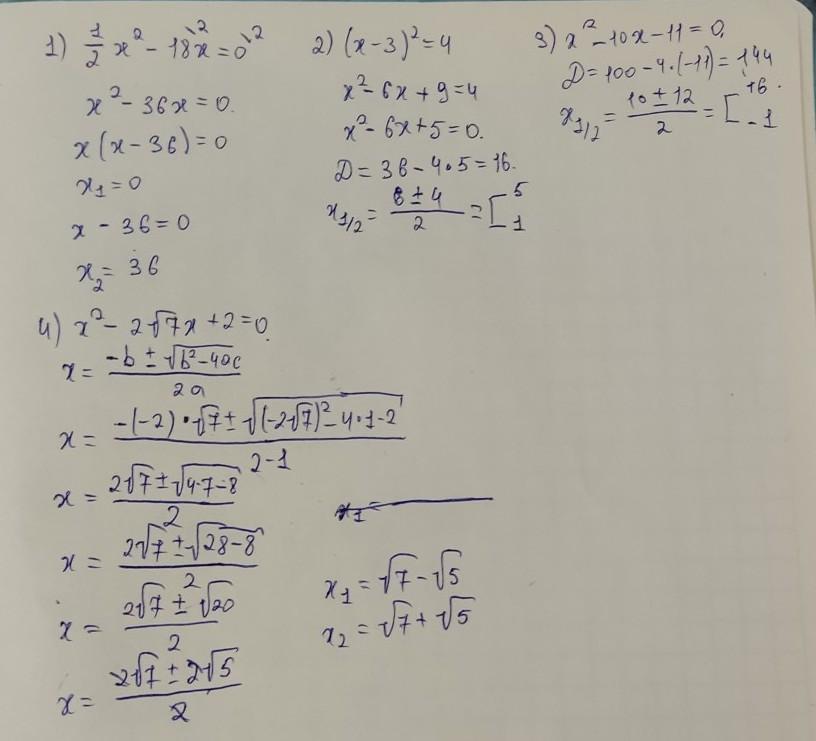 1) 1/2 x² - 18x = 0 \·2 \·2
x² - 36x = 0.
x(x - 36) = 0
x₁ = 0
x - 36 = 0
x₂ = 36
2) (x - 3)² = 4
x² - 6x + 9 = 4
x² - 6x + 5 = 0.
D = 36 - 4·5 = 16.
x₁/₂ = (6 ± 4)/2 = [ 5 1
3) x² - 10x - 11 = 0.
D = 100 - 4·(-11) = 144
x₁/₂ = (10 ± 12)/2 = [ +6. -1
4) x² - 2√7x + 2 = 0.
x = (-b ± √(b² - 4ac))/2a
x = (-(-2)·√7 ± √((-2√7)² - 4·1-2))/2-1
x = (2√7 ± √(4·7-8))/2
x = (2√7 ± √(28-8))/2
x = (2√7 ± √20)/2
x = (2√7 ± 2√5)/2
x₁ = √7 - √5
x₂ = √7 + √5